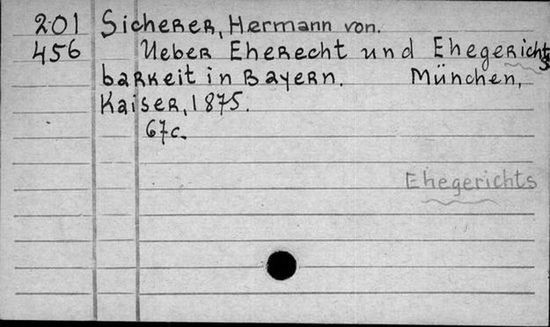 201 Sicherer, Hermann von.
456 Ueber Eherecht und Ehegerichts
barkeit in Bayern. München,
Kaiser, 1875.
67c.
Ehegerichts